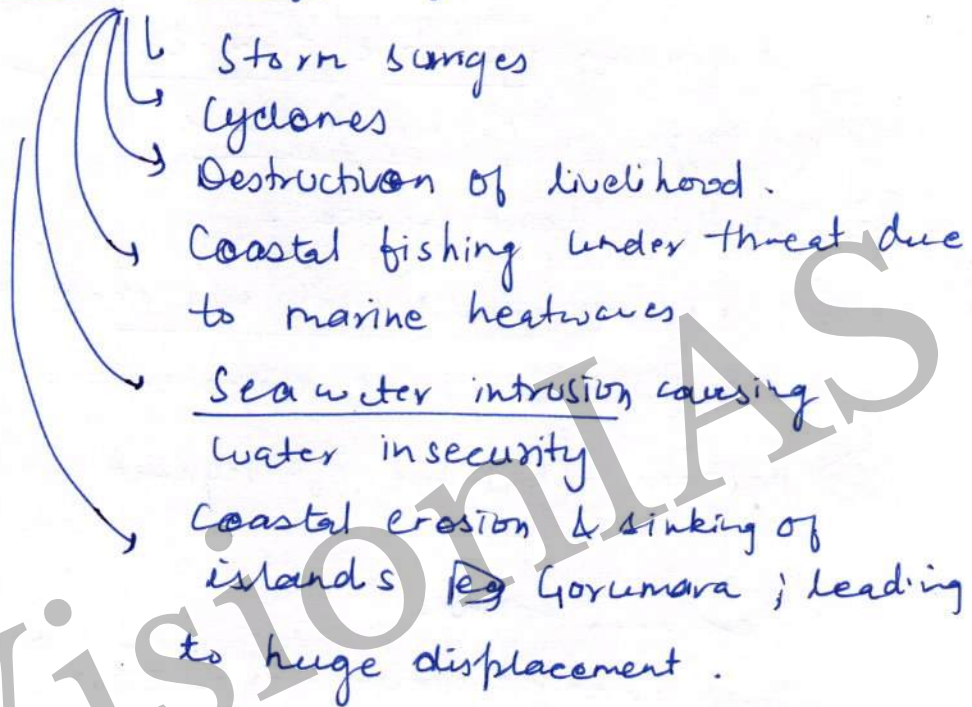 Storm surges
Cyclones
Destruction of livelihood.
Coastal fishing under threat due
to marine heatwaves
Sea water intrusion causing
water insecurity
Coastal erosion & sinking of
islands eg Gorumara ; leading
to huge displacement.
VisionIAS